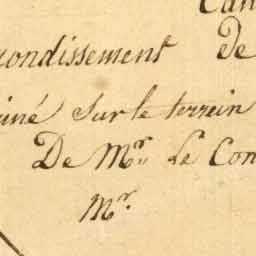 Can
rondissement de
iné sur le terrein
De Mr. Le Con
Mr.